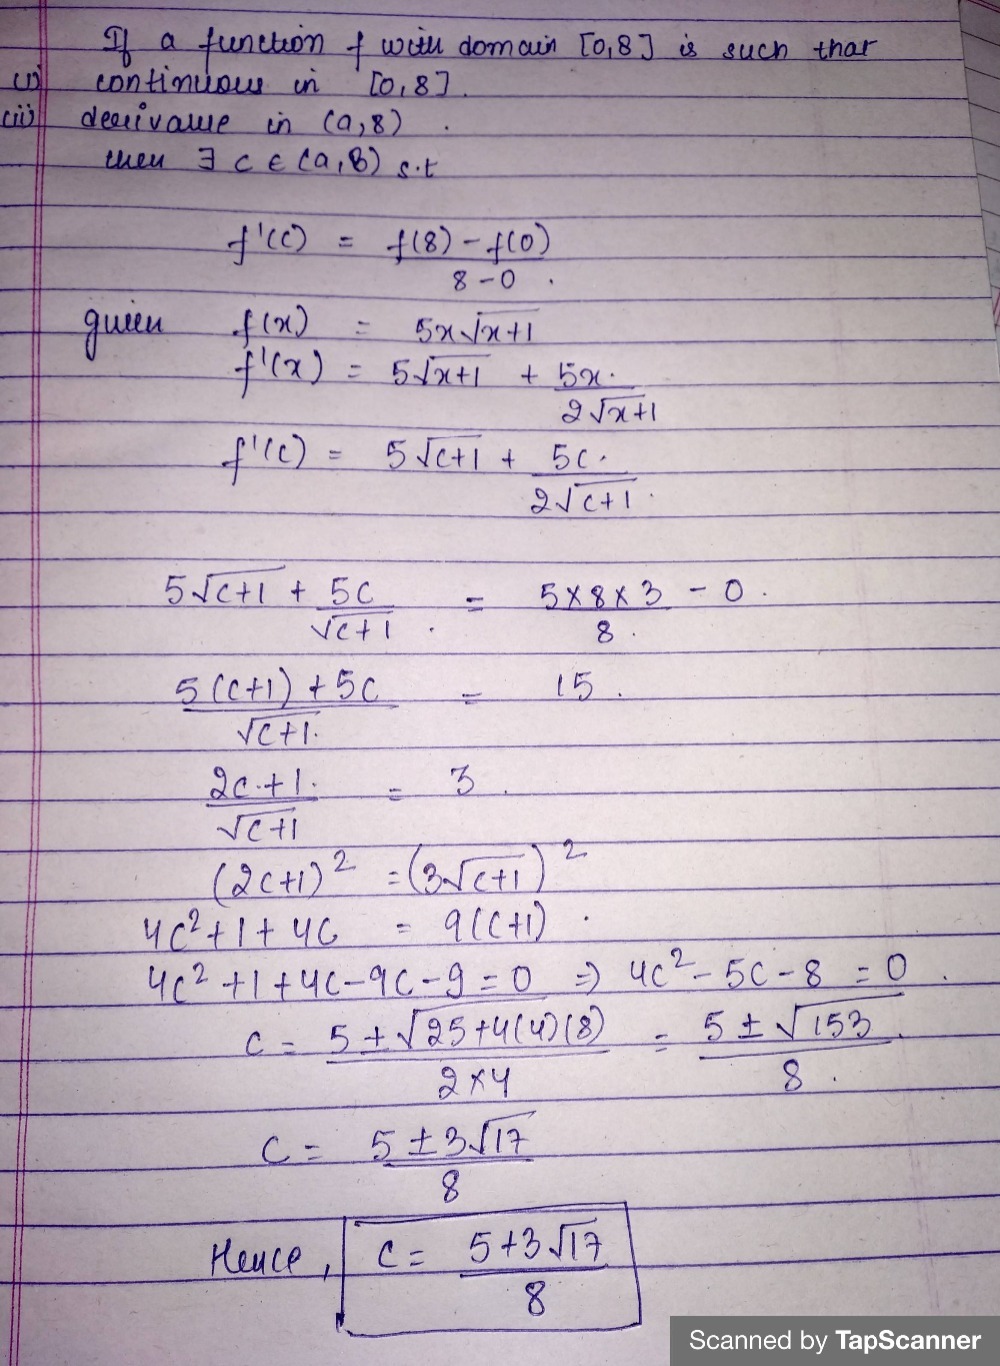 If a function f with domain [0,8] is such that
(i) continuous in [0,8].
(ii) derivable in (a,8).
then ∃ c ∈ (a,8) s.t
f'(c) = f(8) - f(0) / 8 - 0.
given f(x) = 5x√x+1
f'(x) = 5√x+1 + 5x. / 2√x+1
f'(c) = 5√c+1 + 5c. / 2√c+1.
5√c+1 + 5c / √c+1. = 5×8×3 / 8. - 0.
5(c+1) + 5c / √c+1. = 15.
2c+1. / √c+1 = 3.
(2c+1)² = (3√c+1)²
4c²+1+4c = 9(c+1).
4c²+1+4c-9c-9=0 ⇒ 4c²-5c-8 = 0.
c = 5±√25+4(4)(8) / 2×4 = 5 ± √153 / 8.
c = 5 ± 3√17 / 8
Hence, c = 5+3√17 / 8
Scanned by TapScanner